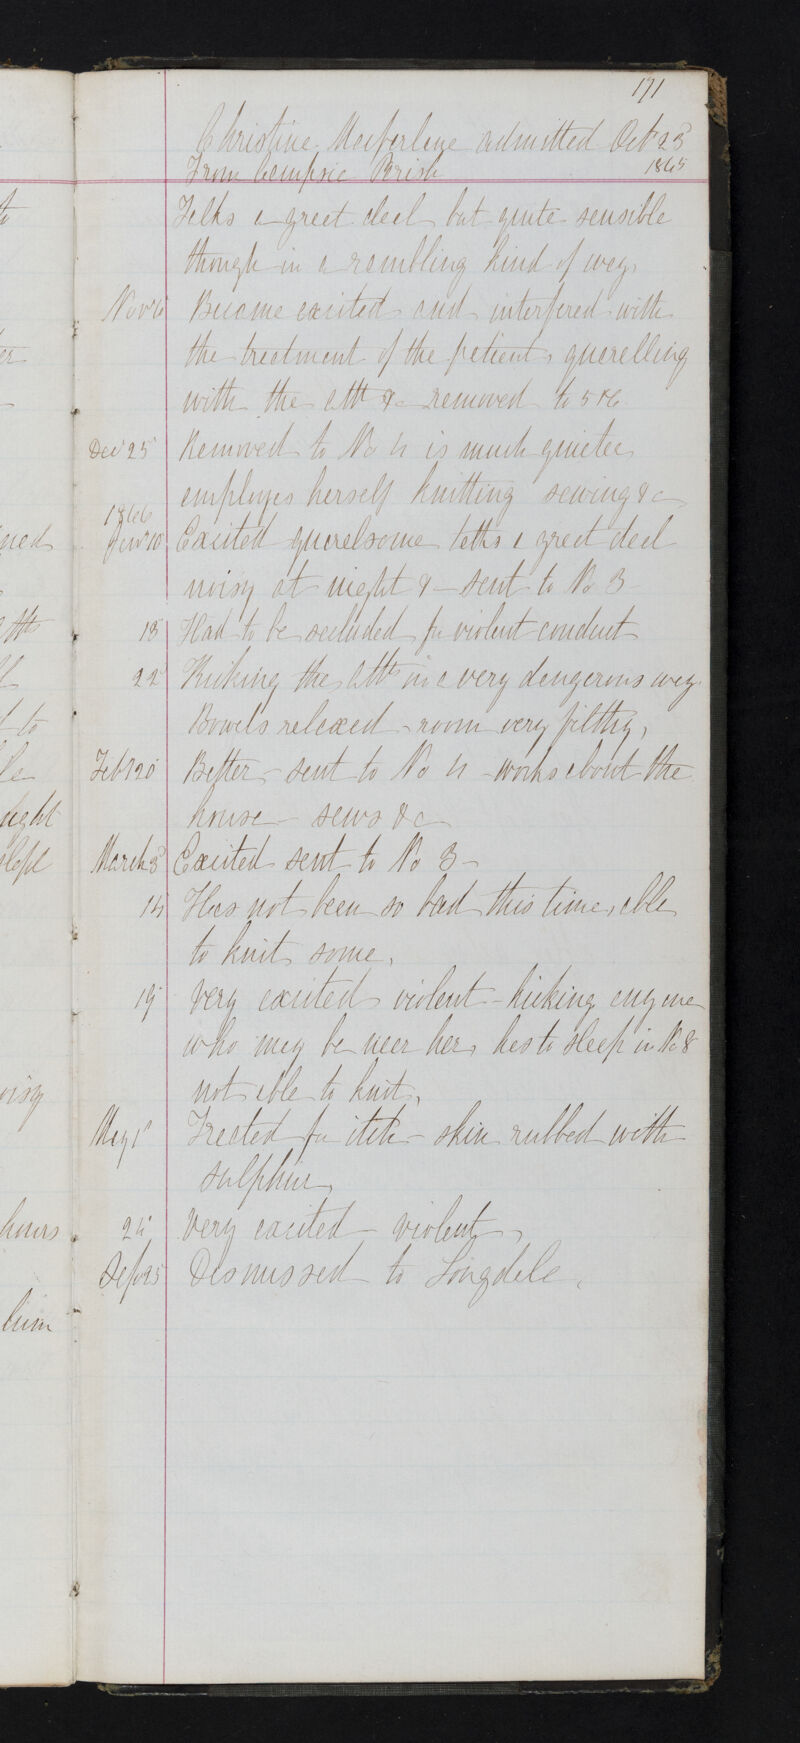 171
Christine Macfarlane admitted Oct 23
1865
From Campsie Parish
Talks a great deal but quite sensible
though in a rambling kind of way,
Nov 6 Became excited and interfered with
the treatment of the patients, quarelling
with the atts &c removed to 5 & 6
Dec 25 Removed to No 4 is much quieter
employes herself knitting sewing &c
1866
Jan 10 Excited quarelsome talks a great deal
noisy at night &- sent to No 3
13 Had to be secluded for violent conduct
22 Kicking the atts in a very dangerous way.
Bowels relaxed - room very filthy,
Feb 20 Better - sent to No 4 - works about the
house - sews &c
March 3 Excited sent to No 3 -
14 Has not been so bad this time, able
to knit some,
19 Very excited violent - kicking anyone
who may be near her, has to sleep in No 8
not able to knit,
May 1 Treated for itch - skin rubbed with
sulphur,
24 Very excited - violent,
Sep 25 Dismissed to Longdale,
ned
atts
to
ight
noisy
hours
him